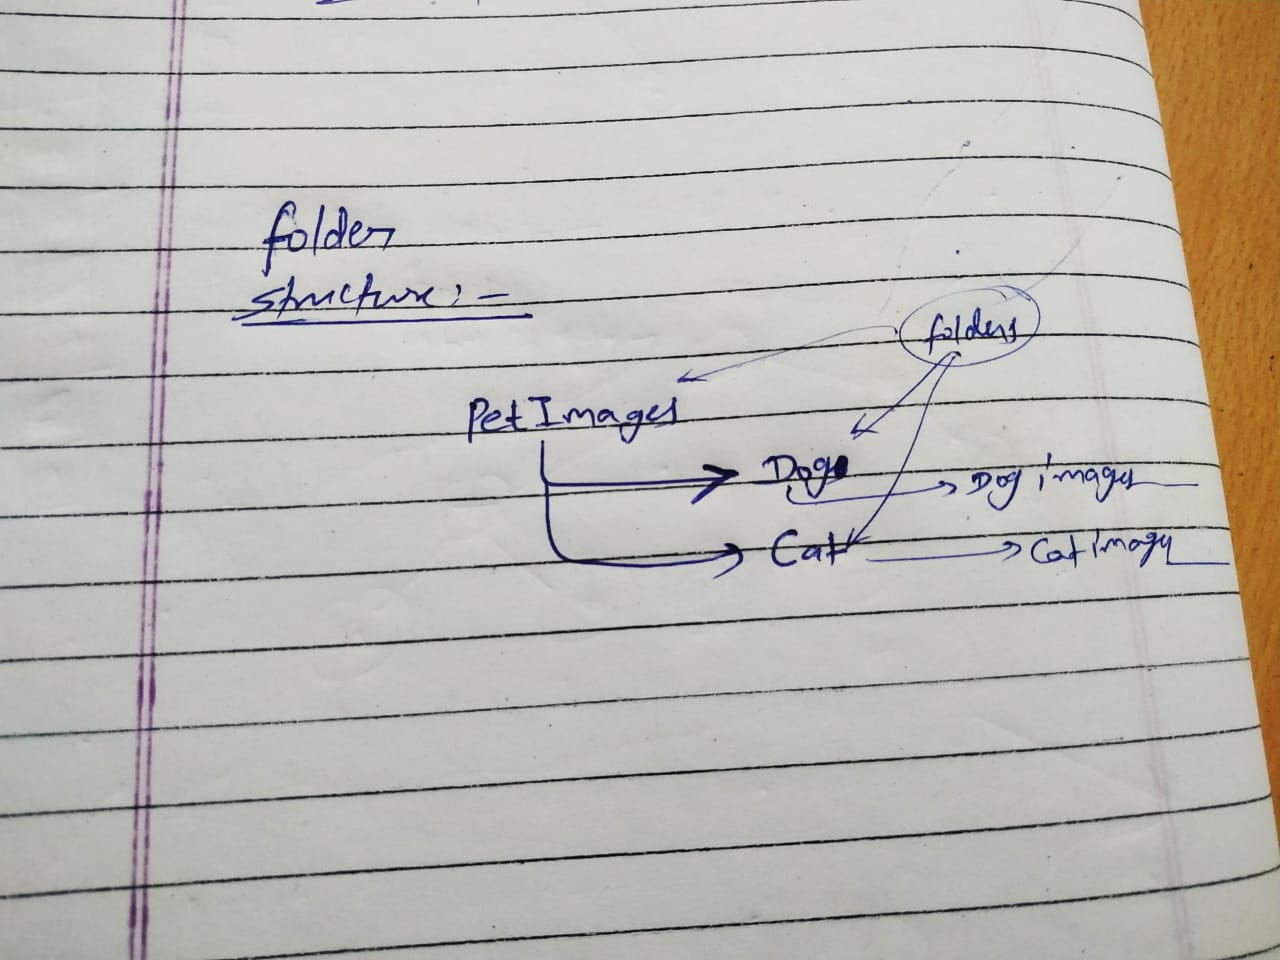 folder
structure :-
folders
PetImages
Dog
Dog images
Cat
Cat images